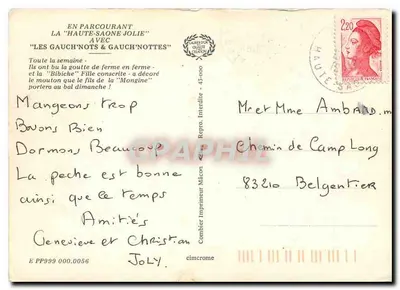 EN PARCOURANT
LA "HAUTE-SAONE JOLIE"
AVEC
"LES GAUCH'NOTS & GAUCH'NOTTES"
Toute la semaine -
Ils ont bu la goutte de ferme en ferme -
et la "Bibiche" Fille conscrite - a décoré
le mouton que le fils de la "Mongine"
portera au bal dimanche !
Mangeons trop
Bovons Bien
Dormons Beaucoup
La peche est bonne
ainsi que le temps
Amitiés
Genevieve et Christian
JOLY.
E PP999 000.0056
Combier Imprimeur Mâcon
Repro. Interdite - 45-000
cimcrome
2,20
HAUTE-SA
Mr et Mme AMBARD
Chemin de Camp Long
83210 Belgentier